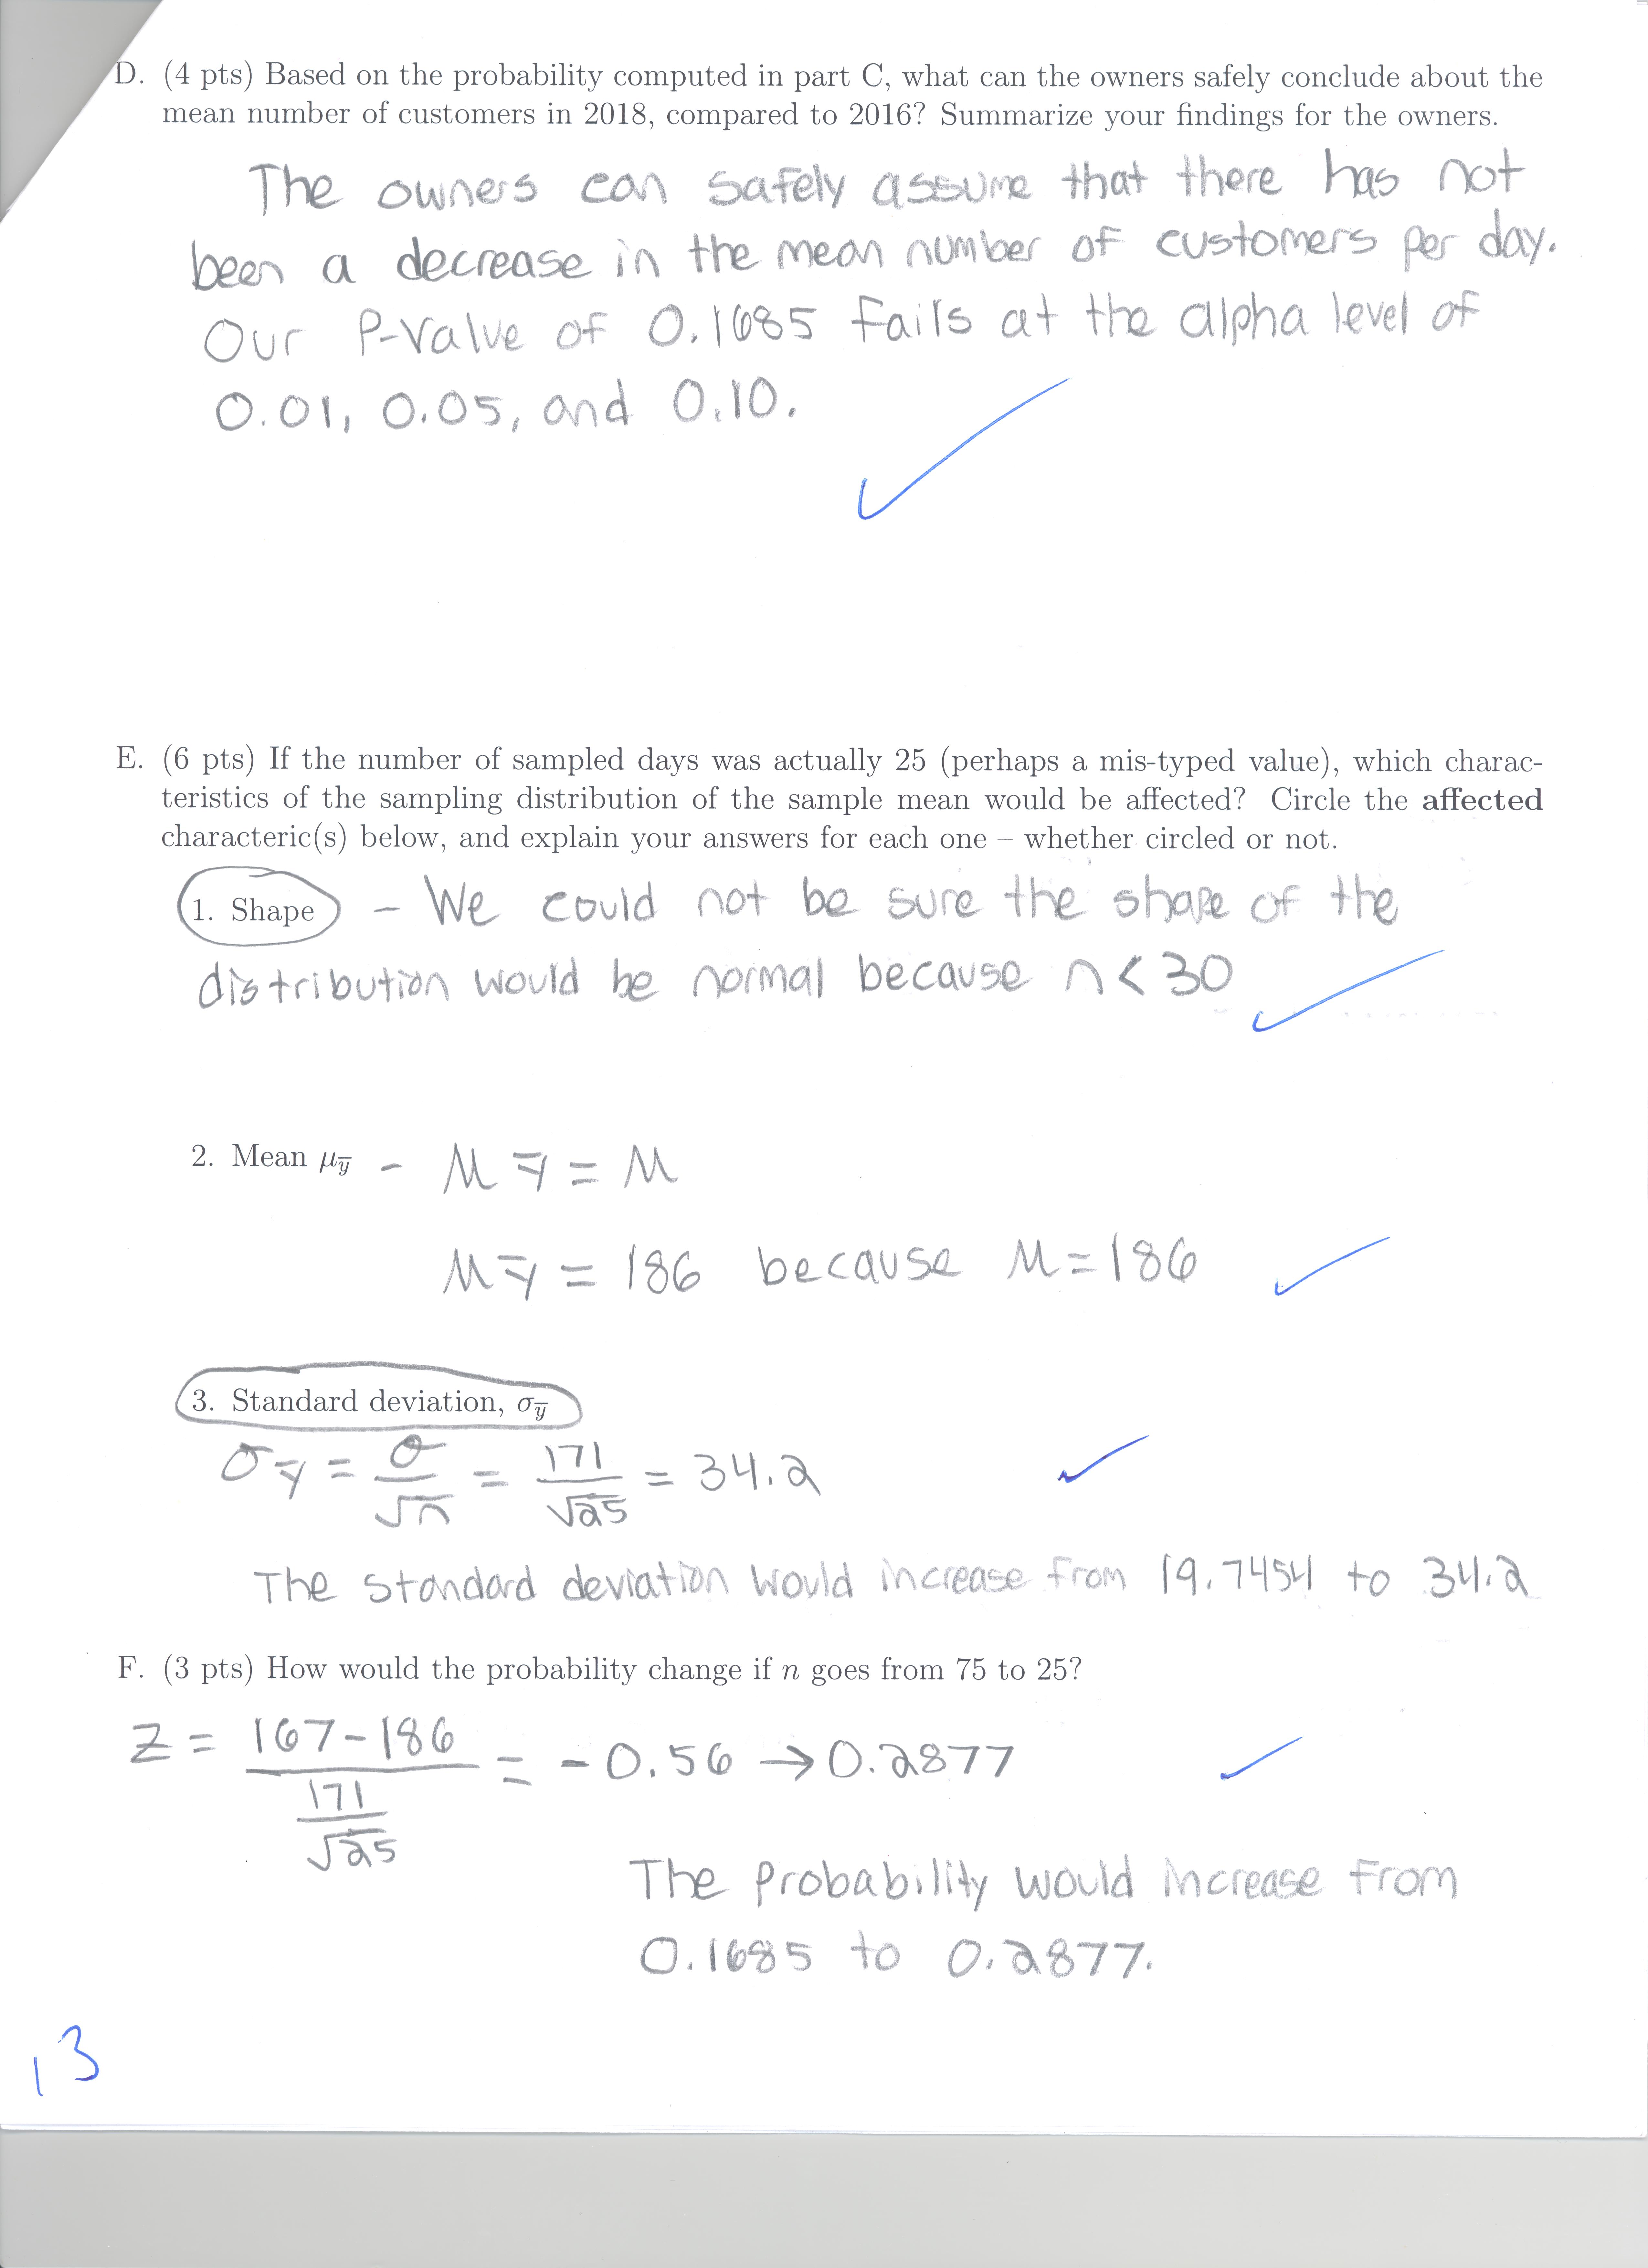 D. (4 pts) Based on the probability computed in part C, what can the owners safely conclude about the
mean number of customers in 2018, compared to 2016? Summarize your findings for the owners.
The owners can safely assume that there has not
been a decrease in the mean number of customers per day.
Our P-Value of 0.1685 fails at the alpha level of
0.01, 0.05, and 0.10.
E. (6 pts) If the number of sampled days was actually 25 (perhaps a mis-typed value), which charac-
teristics of the sampling distribution of the sample mean would be affected? Circle the affected
characteric(s) below, and explain your answers for each one – whether circled or not.
1. Shape - We could not be sure the shape of the
distribution would be normal because n < 30
2. Mean μ_y̅ - M_y̅ = M
M_y̅ = 186 because M = 186
3. Standard deviation, σ_y̅
σ_y̅ = σ/√n = 171/√25 = 34.2
The standard deviation would increase from 19.7454 to 34.2
F. (3 pts) How would the probability change if n goes from 75 to 25?
Z = (167-186)/(171/√25) = -0.56 → 0.2877
The probability would increase from
0.1685 to 0.2877.
13